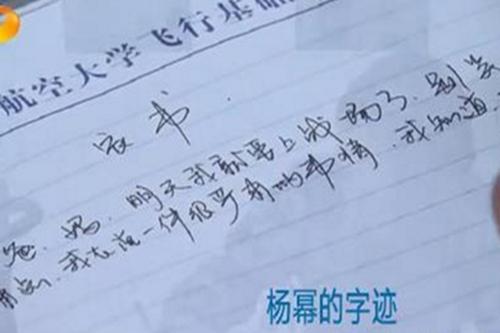 航空大学飞行基础
家书
爸、妈,明天我就要上战场了,别笑
我在说一件很严肃的事情,我知道
杨幂的字迹